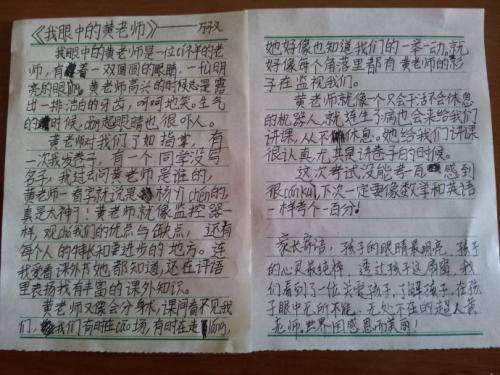 《我眼中的黄老师》——万子义
我眼中的黄老师是一位cí祥的老
师，有着一双圆圆的眼睛，一扎明
亮的眼血。黄老师高兴的时候总是露
出一排洁白的牙齿，呵呵地笑。生气
的时候，西瓜起眼睛也很吓人。
黄老师对我们了如指掌，有
一次我发卷子，有一个同学没写
名字，我过去问黄老师是谁的，
黄老师一看字就说是杨介chén的，
真是太神了！黄老师就像监控器一
样，观chá我们的优点与缺点，还有
每个人的特长和要进步的地方。连
我爱看课外书她都知道，还在评语
里表扬我有丰富的课外知识。
黄老师又像会分身术，课间看不见我
们，我们有时在cāo场，有时在走láng，
她好像也知道我们的一举一动。就
好像每个角落里都有黄老师的影
子在监视我们。
黄老师就像一个只会干活不会休息
的机器人，就连生了病也会来给我们
讲课，从不休息。她给我们讲课
很认真，尤其是讲卷子的时候。
这次考试没能考一百感到
很cán kuì，下次一定要像数学和英语
一样考个一百分！
家长寄语：孩子的眼睛最明亮，孩子
的心灵最纯粹，透过孩子这扇窗，我
们看到了一位关爱孩子，了解孩子，在孩
子眼中无所不能，无处不在的超人黄
老师，世界因感恩而美丽！